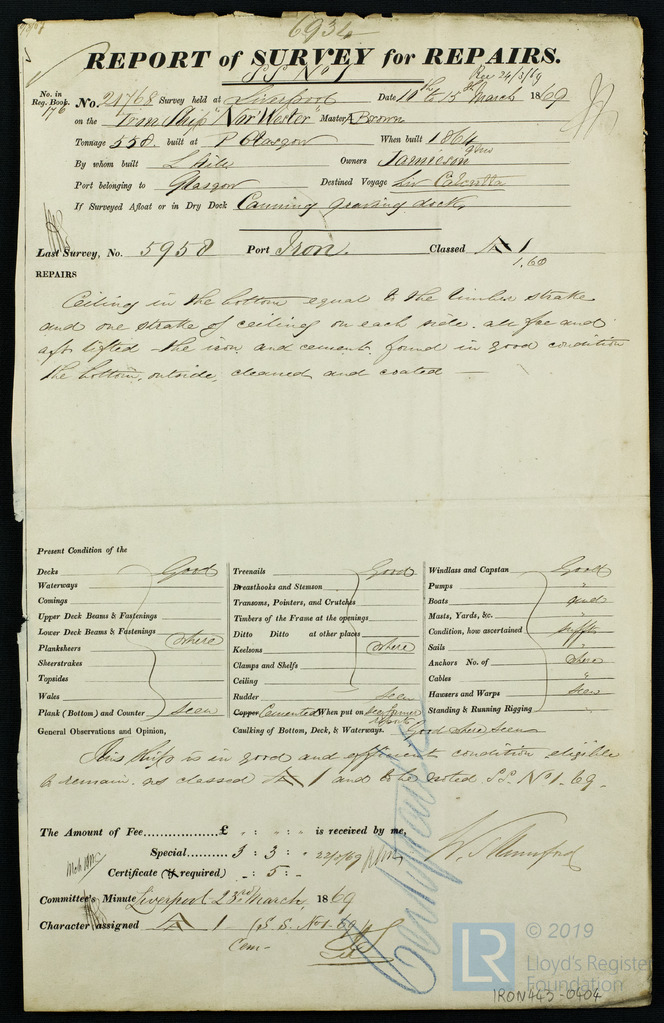 6934
REPORT of SURVEY for REPAIRS.
S.S. No 1
Rec 24/3/69
No. in Reg. Book. 176
No. 21768 Survey held at Liverpool Date 10th to 15th March 1869
on the Iron Ship "Nor Wester" Master A Brown
Tonnage 558 built at P Glasgow When built 1864
By whom built L Hill Owners Jamieson
Port belonging to Glasgow Destined Voyage Liv Calcutta
If Surveyed Afloat or in Dry Dock Canning graving dock,
Last Survey, No. 5958 Port Iron. Classed A 1
1.60
REPAIRS
Ceiling in the bottom equal to the limber strake
and one strake of ceiling on each side. all fore and
aft lifted the iron and cement found in good condition
the bottom, outside, cleaned and coated
Present Condition of the
Decks Good
Waterways
Comings
Upper Deck Beams & Fastenings
Lower Deck Beams & Fastenings where
Planksheers
Sheerstrakes
Topsides
Wales
Plank (Bottom) and Counter seen
Treenails Good
Breasthooks and Stemson
Transoms, Pointers, and Crutches
Timbers of the Frame at the openings
Ditto Ditto at other places
Keelsons where
Clamps and Shelfs
Ceiling
Rudder seen
Copper Cemented When put on see former reports
Windlass and Capstan Good
Pumps "
Boats good
Masts, Yards, &c.
Condition, how ascertained
Sails "
Anchors No. of where
Cables "
Hawsers and Warps seen
Standing & Running Rigging
General Observations and Opinion, Caulking of Bottom, Deck, & Waterways. Good where seen
This ship is in good and efficient condition eligible
to remain as classed A 1 and to be noted S.S. No 1-69.
The Amount of Fee £ " : " : " is received by me,
Special 3 : 3 : " 22/3/69
Certificate (if required) " : 5 : "
W. S. Mumford
Committee's Minute Liverpool 23rd March, 1869
Character assigned A 1 (S.S. No 1-69)
Cem-
© 2019
LR
Lloyd's Register
Foundation
IRON443-0404